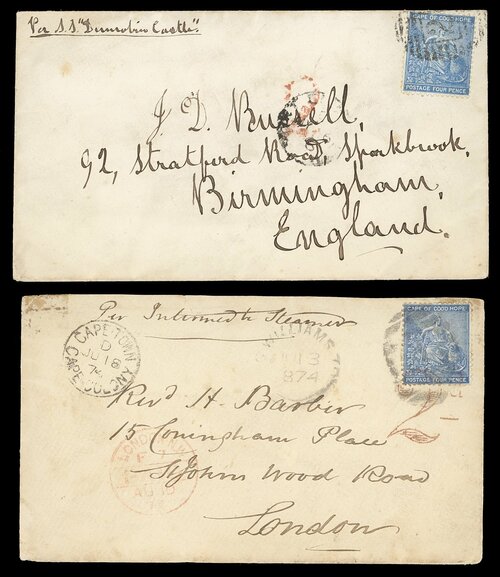 Per S.S "Dunrobin Castle".
CAPE OF GOOD HOPE
POSTAGE FOUR PENCE
J. D. Russell,
92, Stratford Road, Sparkbrook,
Birmingham,
England.
Per Intermedte Steamer
CAPE TOWN
D
JU 18
74
CAPE COLONY
WILLIAMS
13
874
CAPE OF GOOD HOPE
POSTAGE FOUR PENCE
Revd H. Barber
15 Coningham Place
St Johns Wood Road
London
LONDON